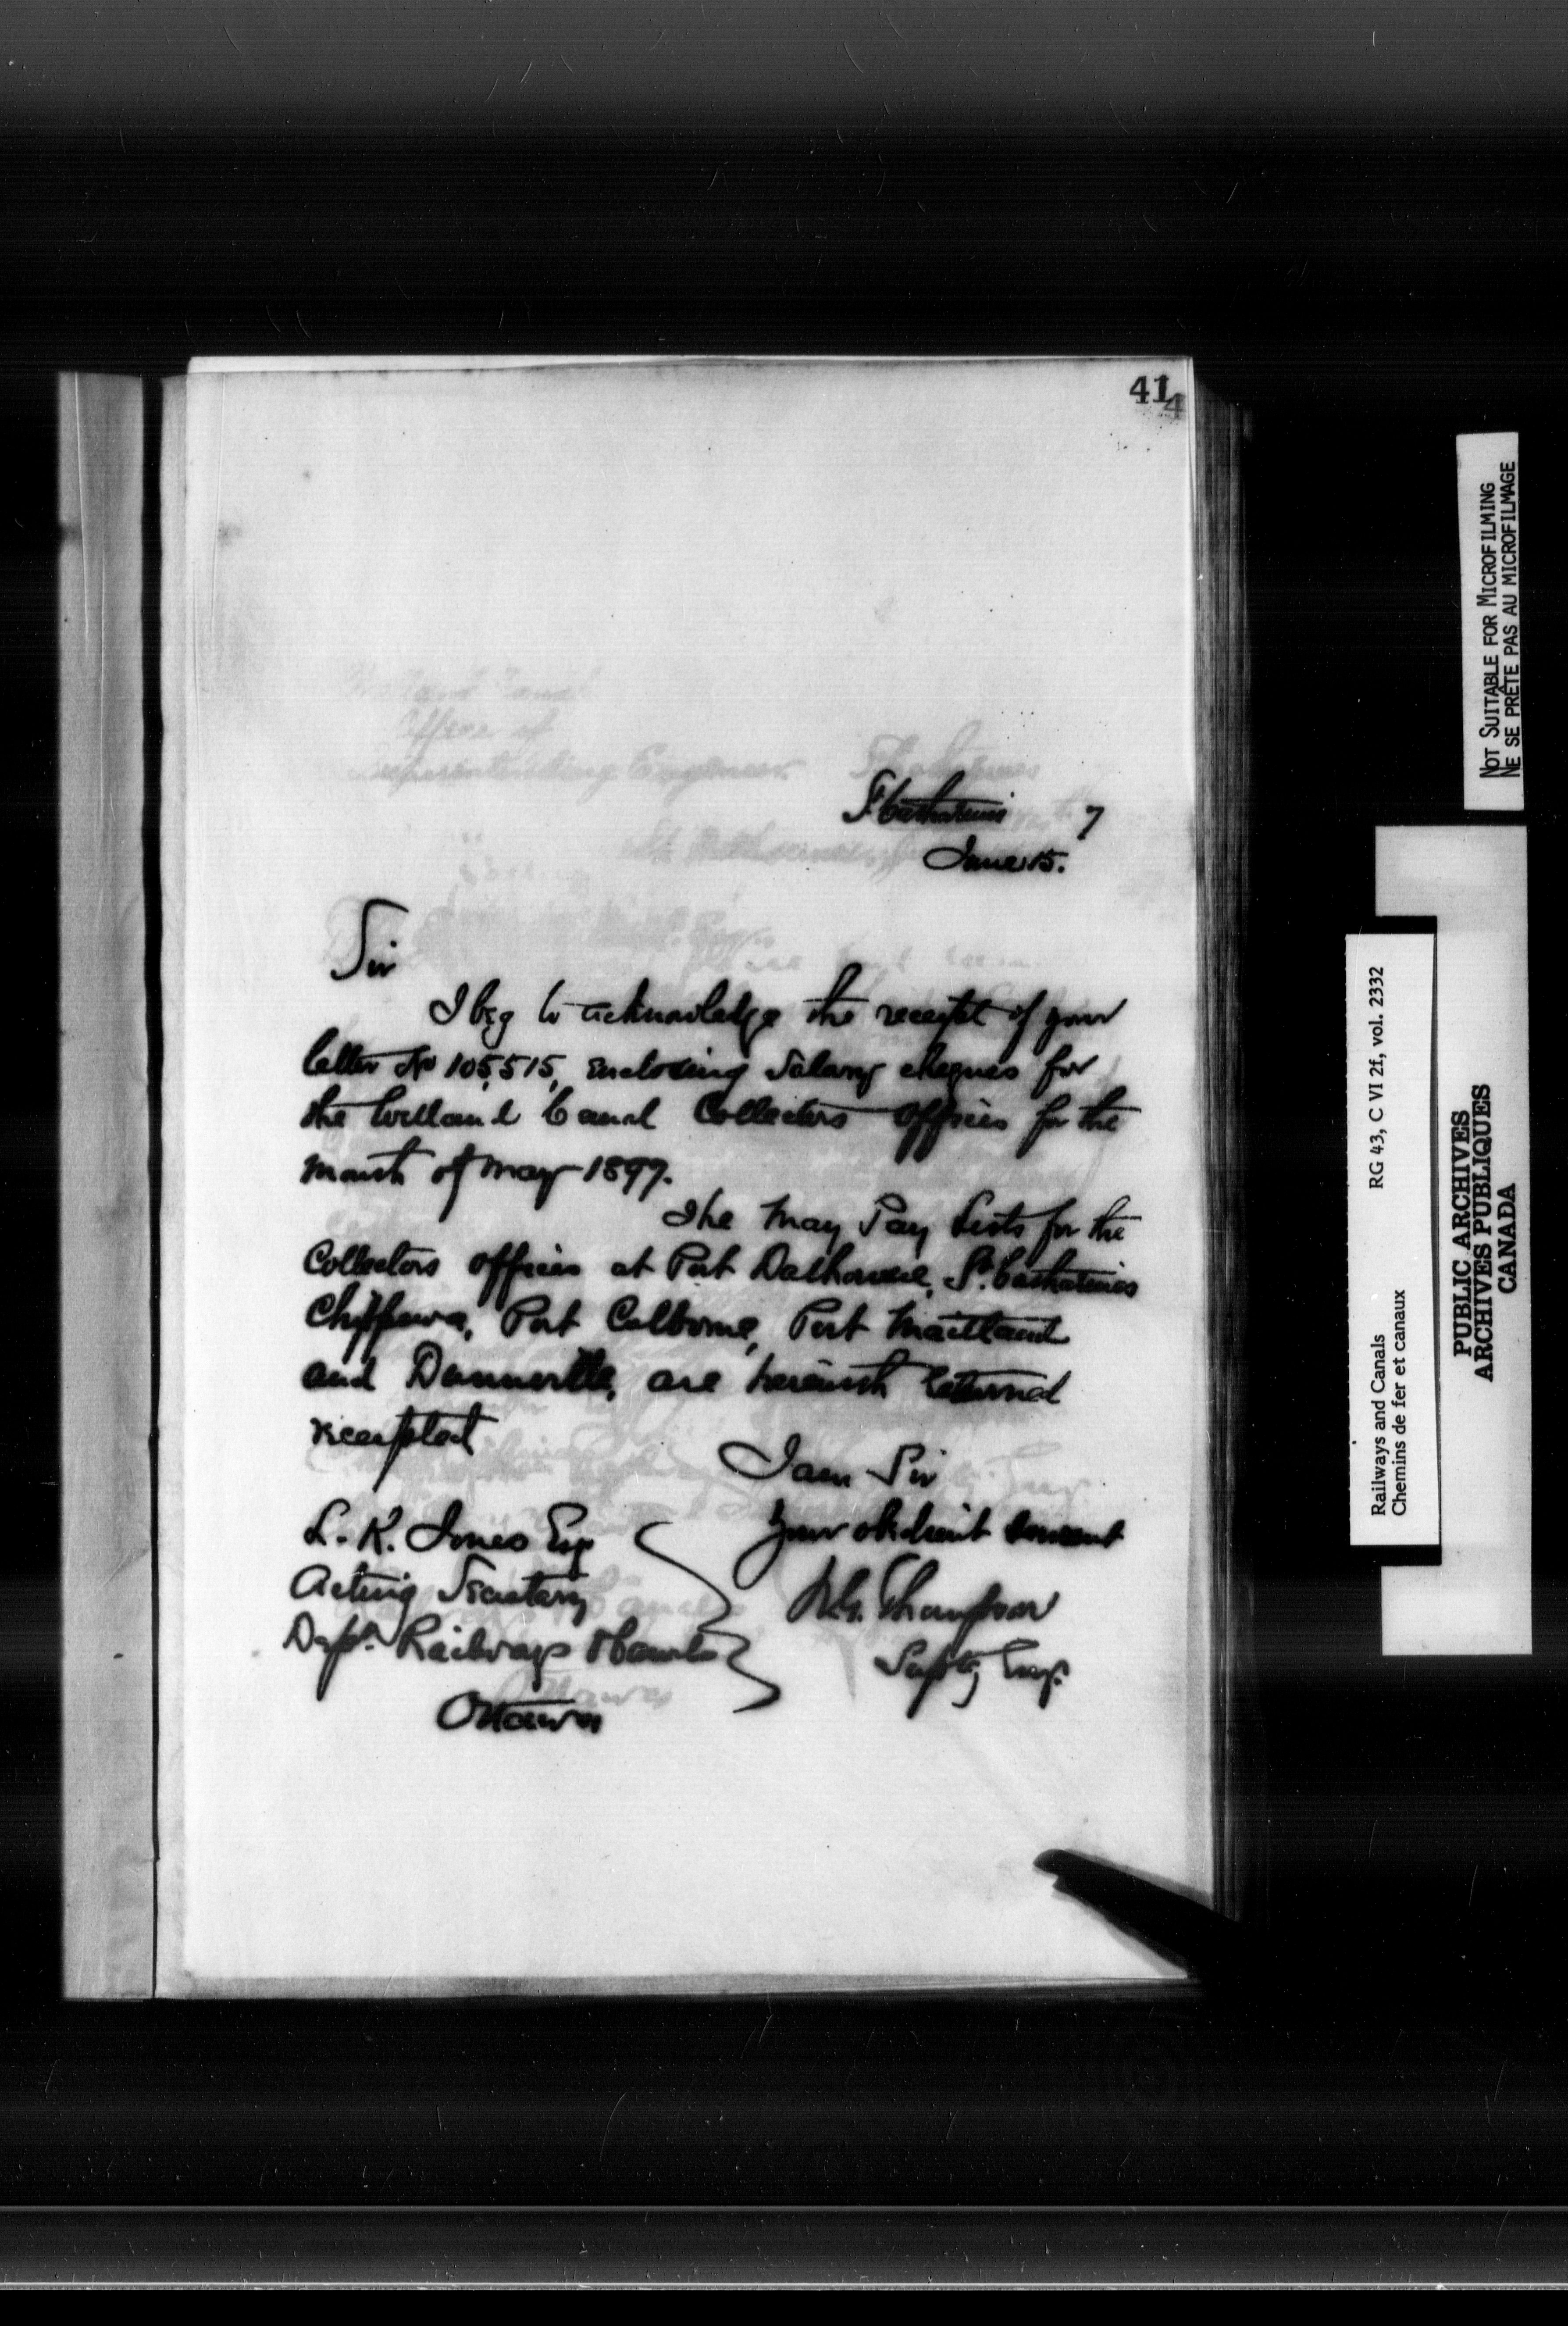 414
St Catharines 7
June 15.
Sir
I beg to acknowledge the receipt of your
letter No 105,515, enclosing Salary cheques for
the Welland Canal Collectors Offices for the
month of May 1897.
The May Pay Lists for the
Collectors offices at Port Dalhousie, St. Catharines
Chippawa, Port Colborne, Port Maitland
and Dunnville, are herewith returned
receipted
I am Sir
Your obedient servant
W.G. Thompson
Suptg Engr.
L. K. Jones Esq
Acting Secretary
Dept. Railways & Canals
Ottawa
Welland Canal
Office of
Superintending Engineer.
NOT SUITABLE FOR MICROFILMING
NE SE PRÊTE PAS AU MICROFILMAGE
Railways and Canals RG 43, C VI 2f, vol. 2332
Chemins de fer et canaux
PUBLIC ARCHIVES
ARCHIVES PUBLIQUES
CANADA